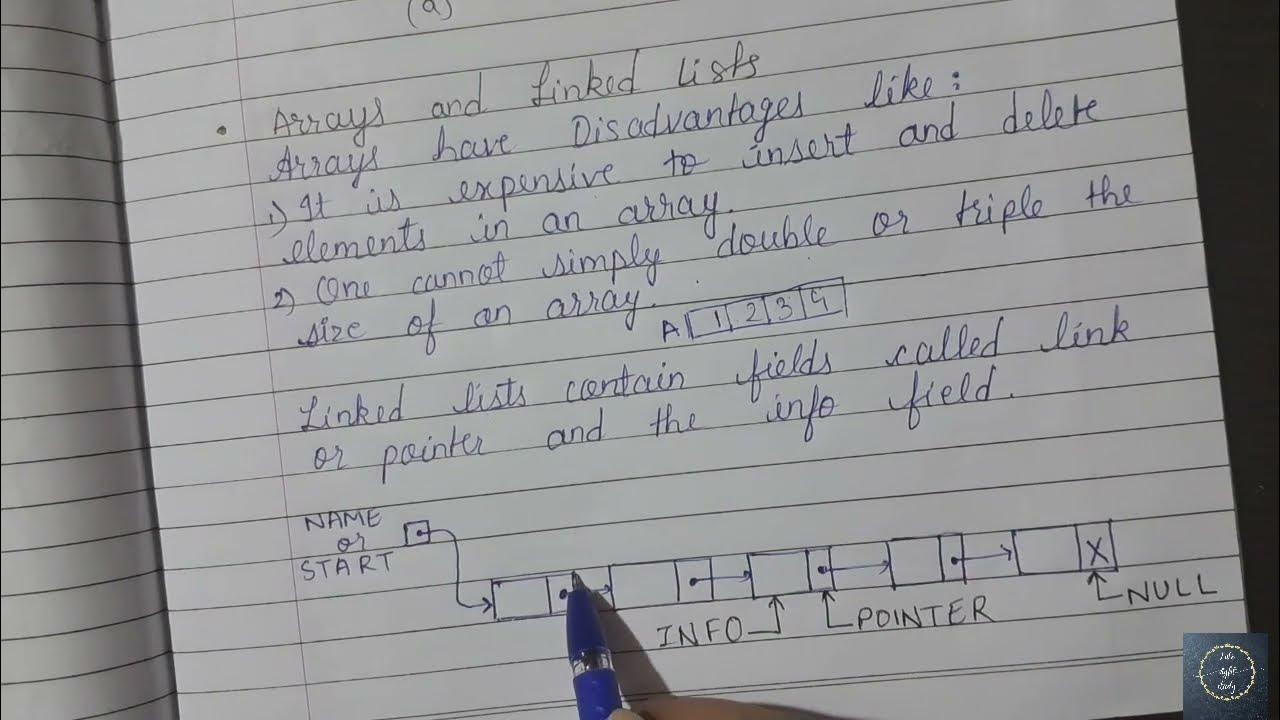 (a)
• Arrays and Linked Lists
Arrays have Disadvantages like:
1) It is expensive to insert and delete
elements in an array.
2) One cannot simply double or triple the
size of an array.
A 1 2 3 4
Linked lists contain fields called link
or pointer and the info field.
NAME
or
START
X
INFO
POINTER
NULL